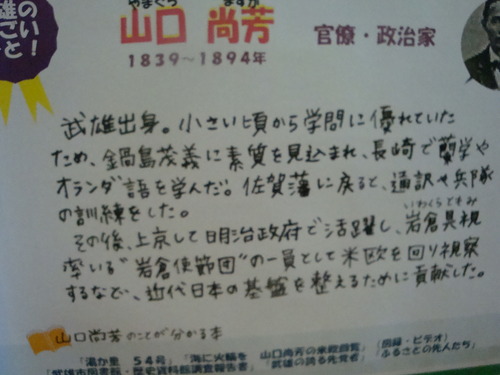 やまぐち ますか
山口 尚芳
官僚・政治家
1839～1894年
武雄出身。小さい頃から学問に優れていた
ため、鍋島茂義に素質を見込まれ、長崎で蘭学や
オランダ語を学んだ。佐賀藩に戻ると、通訳や兵隊
の訓練をした。
いわくらともみ
その後、上京して明治政府で活躍し、岩倉具視
率いる"岩倉使節団"の一員として米欧を回り視察
するなど、近代日本の基盤を整えるために貢献した。
山口尚芳のことが分かる本
「湯か里 54号」「海に火輪を 山口尚芳の米欧回覧」（図録・ビデオ）
「武雄市図書館・歴史資料館調査報告書」「武雄の誇る先覚者」「ふるさとの先人たち」